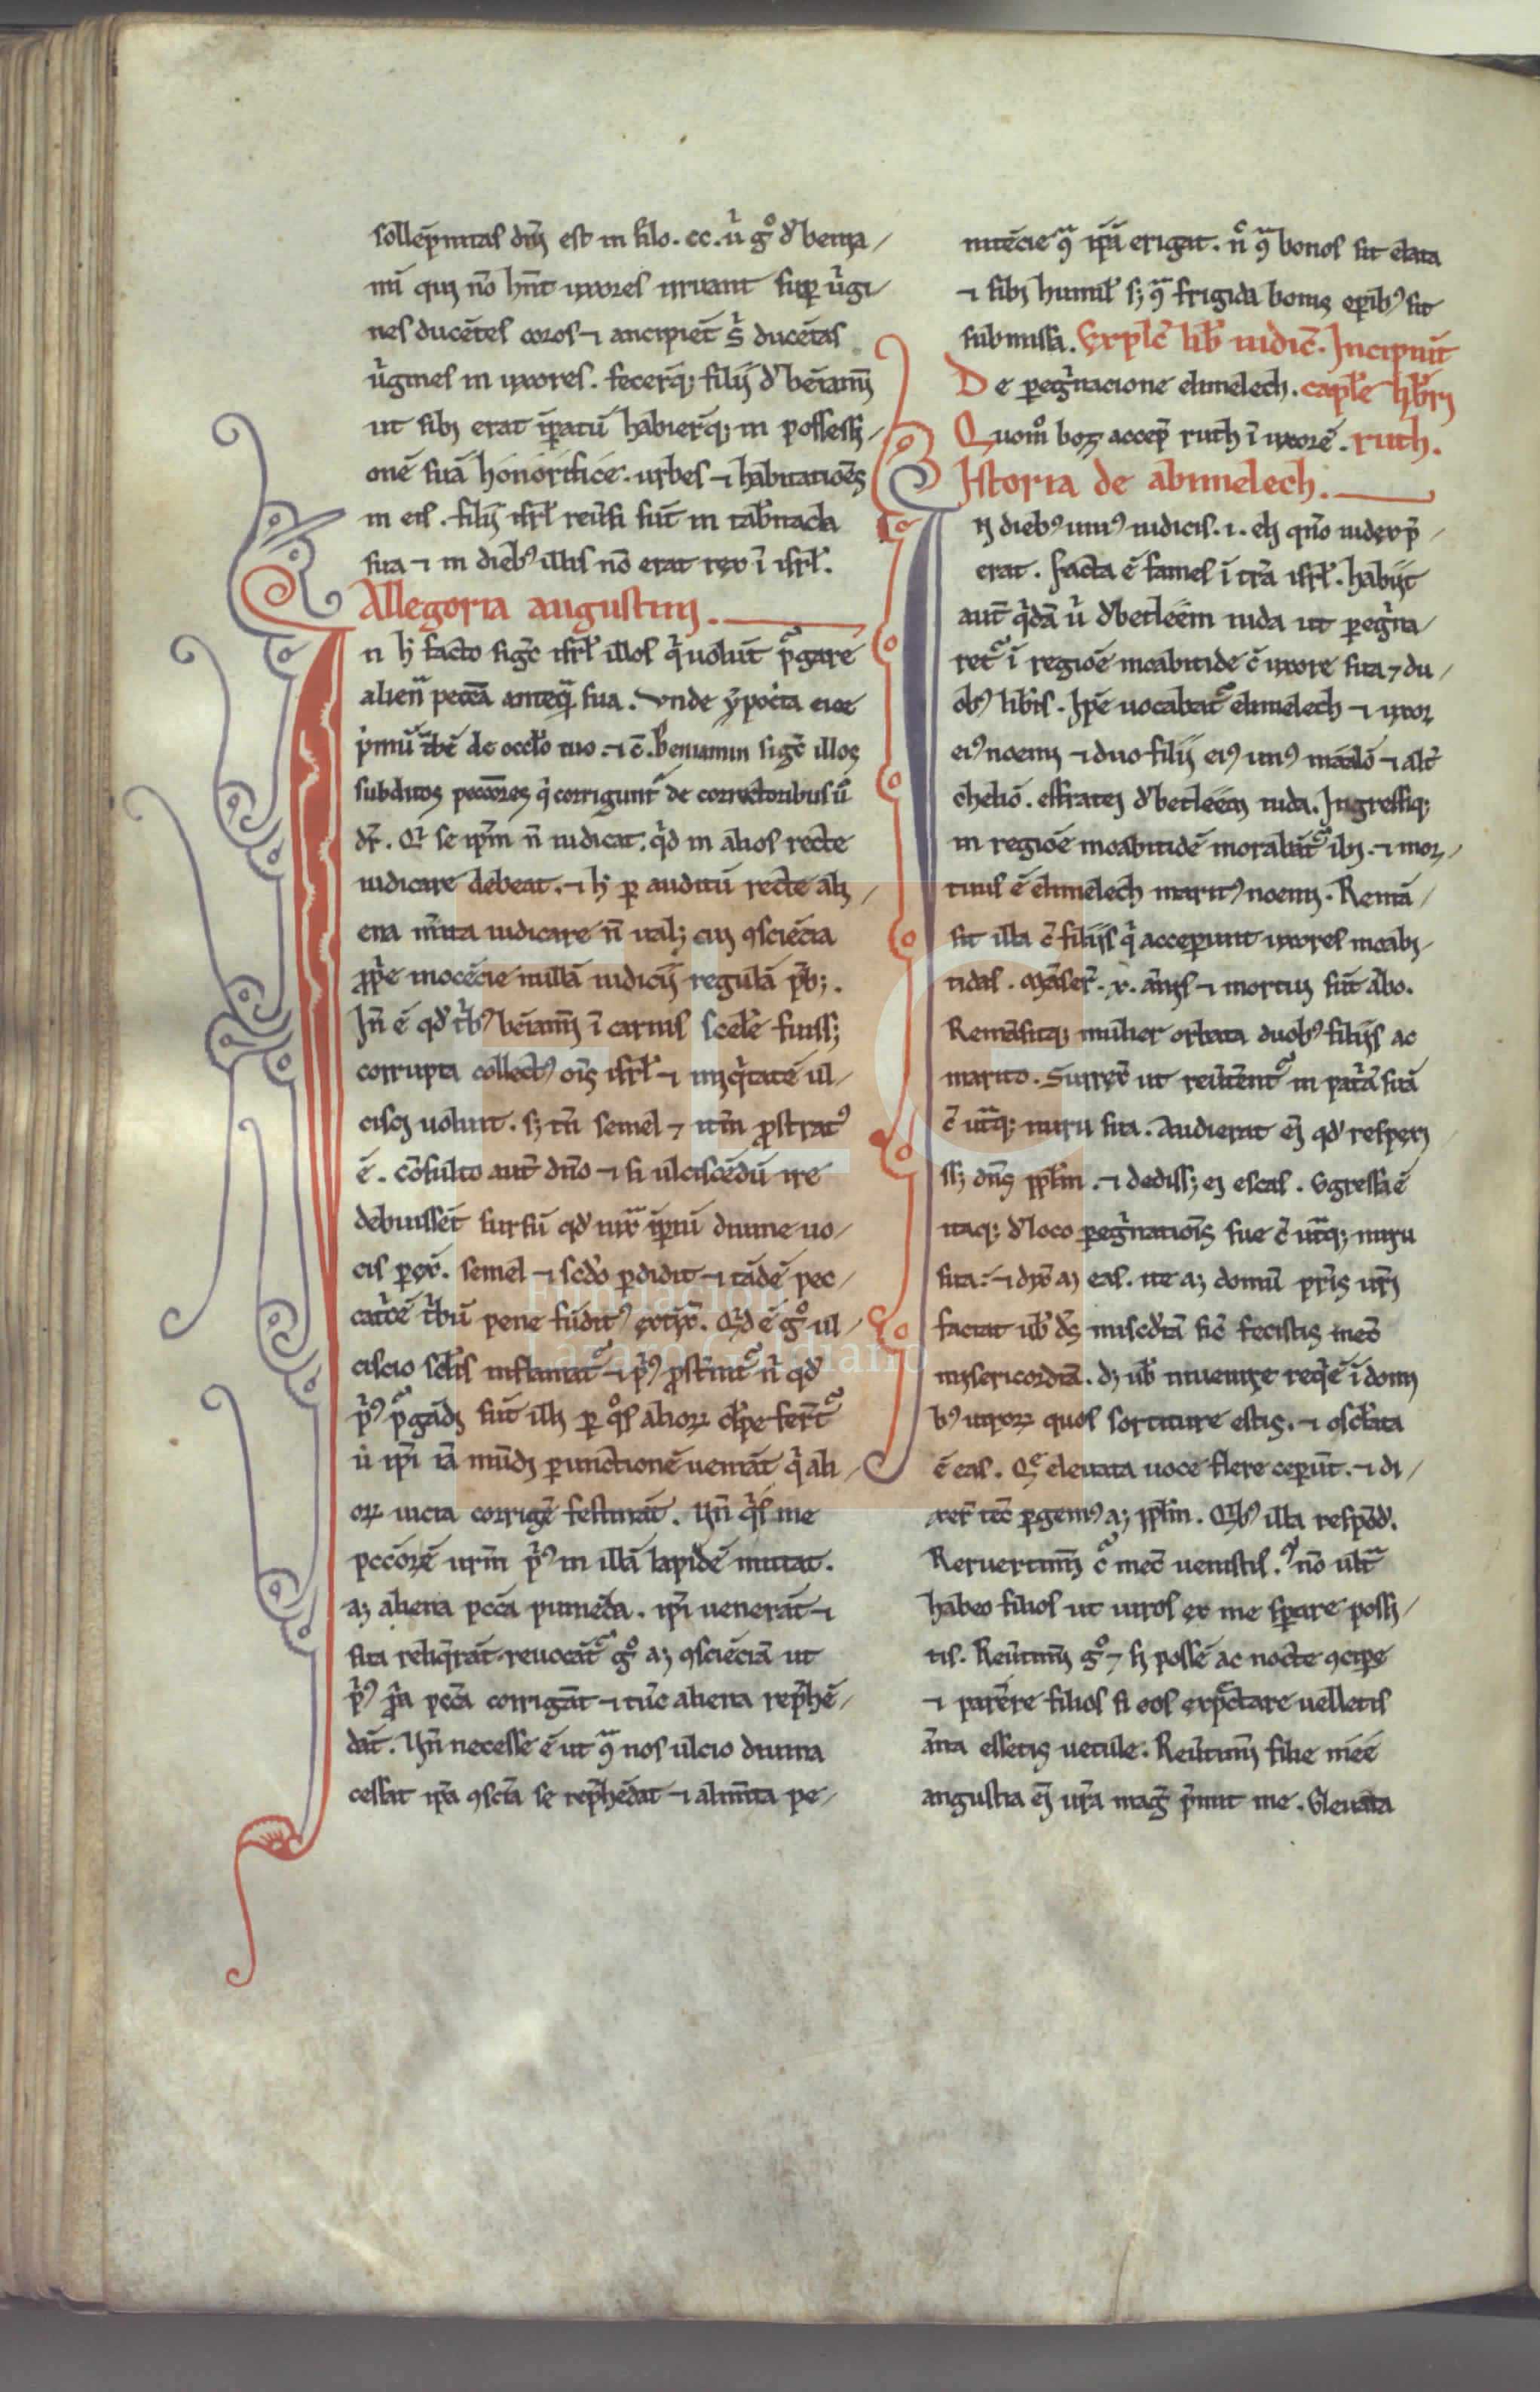 sollēpnitas dn̄i est in silo. cc. ụ̇ gº d̓ benia
mī qui nō hn̄t uxores irruant sup ůgi
nes ducētes coros ⁊ ancipiēt s̓ ducētas
ůgines in uxores. fecerūt q; filii d̓ bēiami
ut sibi erat īpatū habierūt q; in possessi
onē suā honorifice. urbes ⁊ habitatiōes
in eis. filii isrl̄ reūsi sūt in tab̓nacla
sua ⁊ in dieb⁹ illis nō erat rex ī isrl̄.
Allegoria augustini.
In h̓ facto sigc̄ isrl̄ illos q̓ uolūt p̃gare
alienª peccā anteqª sua. Vnde ypoc̓ta eice
p̓mū tªbē de occl̓o tuo. ⁊ c̄. Beniamin sigc̄ illos
subditos peccōres q̓ corrigunt̃ de correctoribus ū
dr̄. Q̓ se ipm̄ n̄ iudicat. q̓d in alios recte
iudicare debeat. ⁊ h̓ p auditū recte ali
ena mīta iudicare n̄ ual; cui ꝯsciēcia
ꝓp̓e inocēcie nullā iudicii regulā p̓b;.
In̄ ē qd̓ tb̓⁹ bēiami ī carnis scele fuiss;
corrupta collect⁹ oīs isrl̄ ⁊ iniq̓tatē ul
cisci uoluit. s; tn̄ semel ⁊ itm̄ ꝓstrat⁹
ē. cōsulto aut̄ dn̄o ⁊ si ulciscēdū ire
debuissēt sursū qd̓ iuxª īpiū diuine uo
cis pex̄. semel ⁊ scd̓o pdidit ⁊ tādē pec
cat̓cē tb̓ū pene fūdit⁹ extīx̄. Q̓d ē gº ul
ciscio scl̓is inflamat̃ ⁊ p̓⁹ ꝓst̓nit̃ n̄ qd̓
p̓⁹ p̃gādi sūt illi p qºs alioꝝ cl̓pe feriūt̃
ů ipi iā mūdi punctionē ueniāt q̓ ali
oꝝ uicia corrigē̓ festināt. Un̄ q̓sl̓ me
pccōrē urm̄ p̓⁹ in illā lapidē mittat.
a; aliena pccā puniēda. ipi uenerāt ⁊
sua reliq̓rāt. reuocāt̃ gº a; ꝯsciēciā ut
p̓⁹ ꝓp̓a pccā corrigāt ⁊ tūc aliena rep̓hē
dāt. Un̄ necesse ē ut qª nos ulcio diuina
cessat ipa ꝯscīa se rep̓hēdat ⁊ alimēta pe
nitēcie qª ipā erigat. nº qª bonos sit elata
⁊ sibi humil̓ s; qª frigida bonis opib⁹ sit
submissa. Explc̄ lib̓ iudic̄. Incipiūt
De pegīnacione elimelech. capl̓e lib̓ri
Quomº booz accep̄ ruth ī uxorē. ruth.
Istoria de abimelech.
In dieb⁹ uni⁹ iudicis. i. eli qn̄o iudex p̄
erat. Facta ē fames ī tr̄a isrl̄. habiit
aut̄ q̓dā ů d̓ betleēm iuda ut pegīna
ret̃ ī regiōē moabitide c̄ uxore sua ⁊ du
ob⁹ lib̓is. Ipē uocabat̃ elimelech ⁊ uxor
ei⁹ noemi ⁊ duo filii ei⁹ un⁹ maalō ⁊ alt̓
chelió. effratei d̓ betleēm iuda. Ingressiq;
in regiōē moabitidē morabāt̃ ibi. ⁊ mor
tuus ē elimelech marit⁹ noemi. Remā
sit illa c̄ filiis q̓ acceperunt uxores moabi
tidas. Māser̄. x. ānis ⁊ mortui sūt ābo.
Remāsitq; mulier orbata duob⁹ filiis ac
marito. Surrex̄ ut reūtent̃ in pat̓ā suā
c̄ utªq; nuru sua. Audierat ei qd̓ respexi
ss; dn̄s ppl̄m. ⁊ dediss; ei escas. Egressa ē
itaq; d̓ loco pegīnatiōis sue c̄ utªq; nuru
sua. ⁊ dix̄ a; eas. ite a; domū pr̄is ur̄i
faciat uob̓ dn̄s misc̓diā sic̄ fecistis mec̄
misericordiā. d; uob̓ inuenire req̓ē ī domi
b⁹ uiroꝝ quos sortiture estis. ⁊ oscl̓ata
ē eas. Qͤ eleuata uoce flere ceperūt. ⁊ di
xer̄ tec̄ pgem⁹ a; ppl̄m. Q̓b⁹ illa respōd̓.
Reruertimī c̃ mec̄ uenistis. nō ultª
habeo filios ut uiros ex me sperare possi
tis. Reūtimī gº ⁊ si possē ac nocte ꝯcipe
⁊ parere filios si eos expectare uelletis
āna essetis uetule. Reūtimī filie meē
angustia ei ur̄a mag̓ p̓mit me. Eleuata
Fundación
Lázaro Galdiano